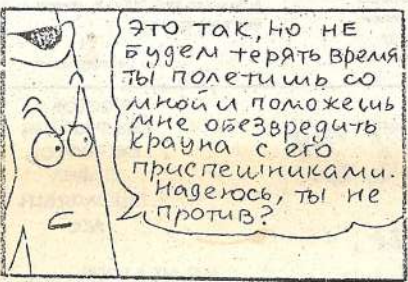 Это так, но не
будем терять время
ты полетишь со
мной и поможешь
мне обезвредить
крауна с его
приспешниками.
Надеюсь, ты не
против?